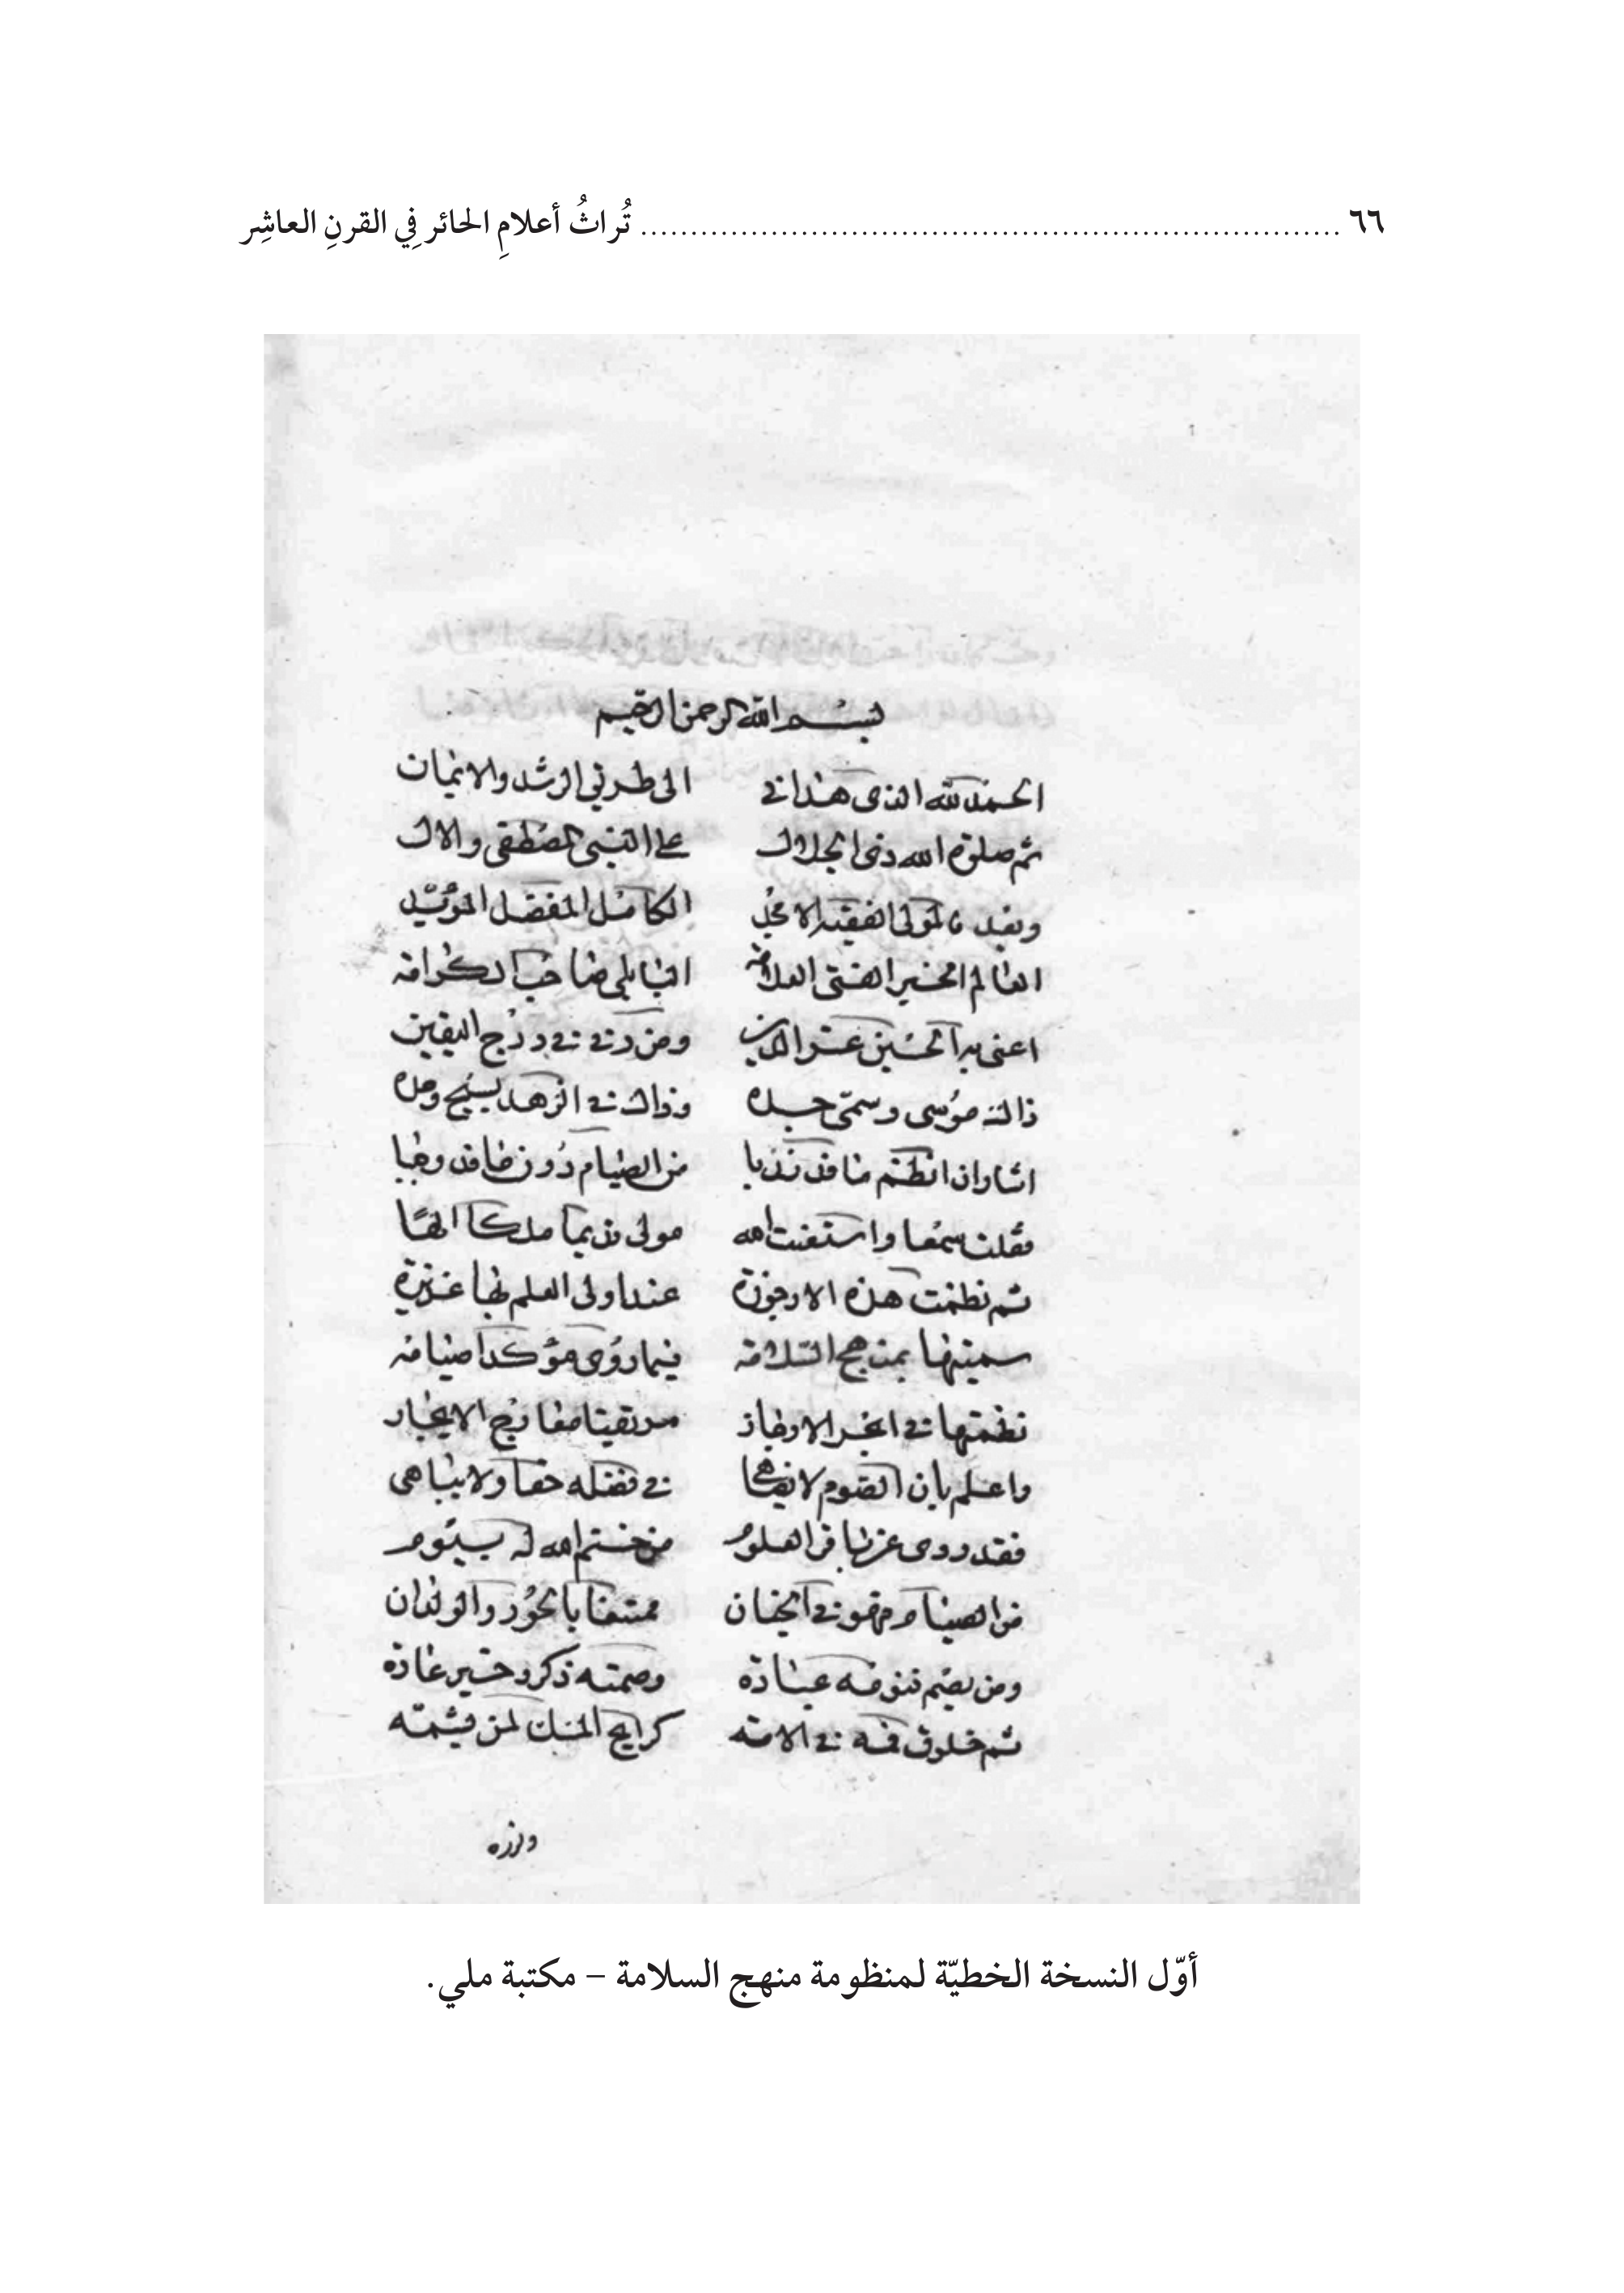 ٦٦ ........ تُراثُ أعلامِ الحائر فِي القرنِ العاشِر
بسم الله الرحمن الرحيم
الحمد لله الذي هداني الى طريق الرشد والايمان
ثم صلوة الله ذي الجلال على النبي المصطفى والال
وبعد فالمولى الفقيه الامجد الكامل المفضل المؤيد
العالم الحبر الفتى العلامه صاحب الكرامه
اعنى به الحسين عز الدين ومن رقى في درج اليقين
ذاك موسى وسمى جده وذاك في الزهد نسيج وحده
اشار ان انظم ما قد ندبا من الصيام دون ما قد وجبا
فقلت سمعا واستعنت الله مولى قديما ملكا الها
ثم نظمت هذه الارجوزة عند اولى العلم بها عزيزة
سميتها بمنهج السلامه فيما روى مؤكدا صيامه
نظمتها في ابحر الارجاز مرتقيا معارج الايجاز
واعلم بان الصوم لا يضاهى في فضله حقا ولا يباهى
فقد روى عن باقر العلوم من ختم الله له بيوم
من الصيام فهو في الجنان ممتعا بالحور والولدان
ومن يصم فنومه عبادة وصمته ذكر وخير عادة
ثم خلوف فمه في الامه كرايح المسك لمن قد شمه
أوّل النسخة الخطيّة لمنظومة منهج السلامة – مكتبة ملي.